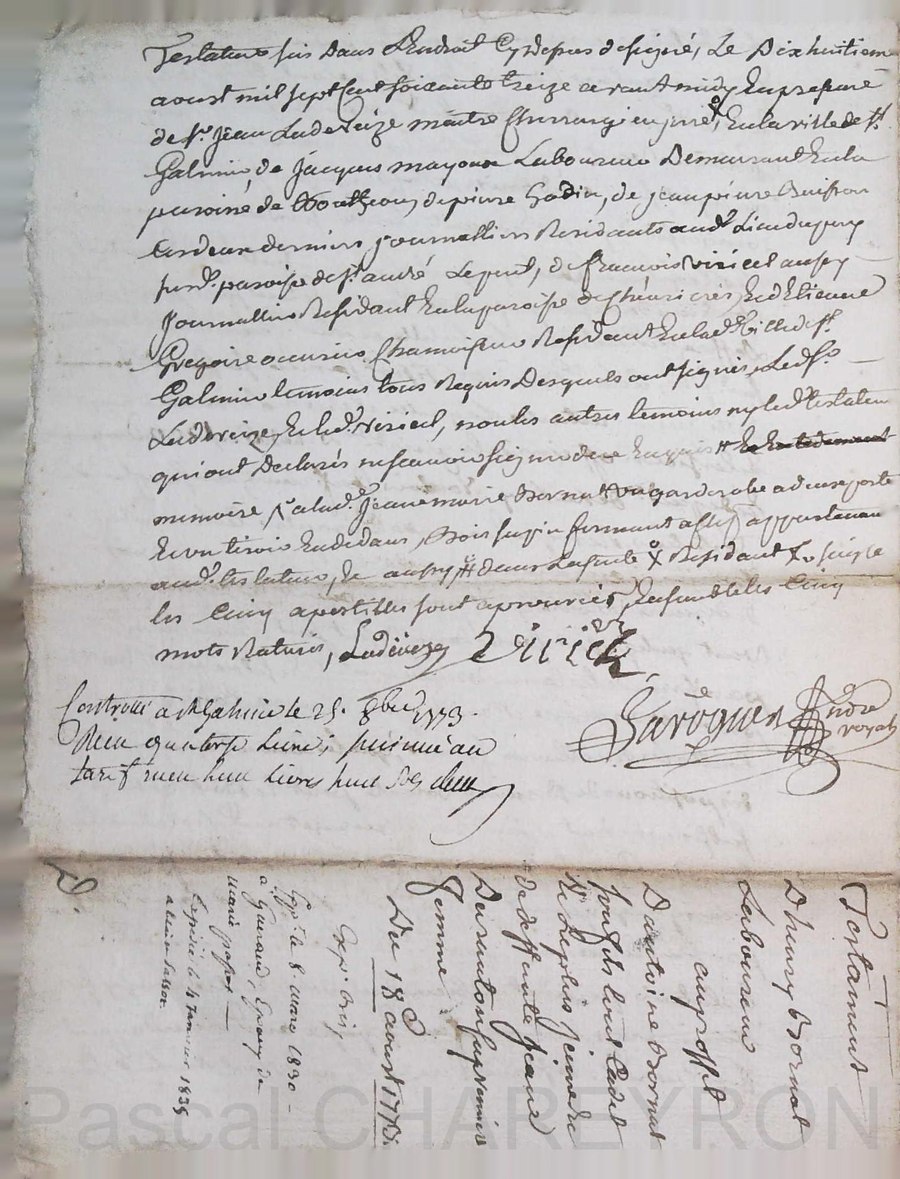 Testateur fais dans l'Endroit Cy depus designé, Le Dixhuitiem
aoust mil sept Cent soixante treize avant midy En presence
de sr. Jean Ladeveize maitre Chirurgien juré, En la ville de st.
Galmier, de Jacques mayoux Laboureur Demeurant En la
paroisse de de pierre Godin, de jean pierre Buisson
Ces deux derniers journalliers Residants aud. Lieu du puy
pred. paroisse de st. andré Le puit, de francois viricel aussy
Journallier Residant En la paroisse de Chénieres, Et d'Etienne
Gregoire Chamoiseur Residant En lad. Ville de st.
Galmier temoins tous Requis Desquels ont signés, Led. sr.
Ladeveize, Et led. viricel, non les autres temoins ny led. testateur
qui ont Declarés ne scavoir signer de ce Enquis #
memoire, a lad. Jeanne marie Bornat un garderobe a deux porte
Et un tiroir En dedans, Bois sapin fermant a clef appartenan
aud. testateur, Et aussy # dans Residant
les Cinq apostilles sont aprouvées, Ensemble les Cinq
mots Raturés, Ladeveize Viricel
Controllé a st Galmier le 25. 8bre 1773.
Reçu quatorze Livres, au
tarif reçu huit Livres huit sols
De Laroque André Froyah
Testament
D'henry Bornat
Laboureur
au proffit
D'antoine Bornat
son fils Cadet
Et Le plus jeune
de deffunte Jeanne
Dumonton sa premiere
femme
Du 18 aoust 1773.
Exp.
Exp. le 8 mars 1830 –
a Epoux de
marie
Expédié le 4 Janvier 1835
D.
Pascal CHAREYRON